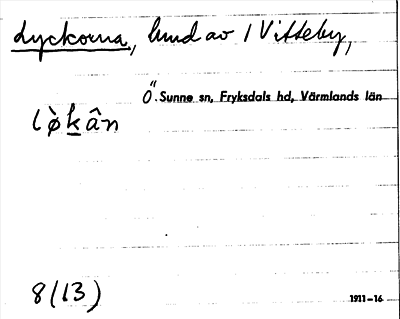 Lyckorna, lund av 1 Vitteby,
Ö. Sunne sn, Fryksdals hd, Värmlands län
lø̀kân
8(13) 1911–16